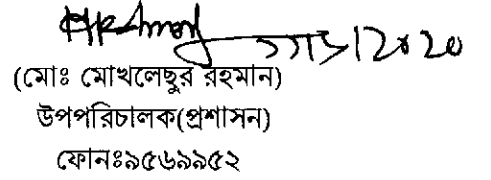 (মোঃ মোখলেছুর রহমান)
উপপরিচালক(প্রশাসন)
ফোনঃ৯৫৬৯৯৫২